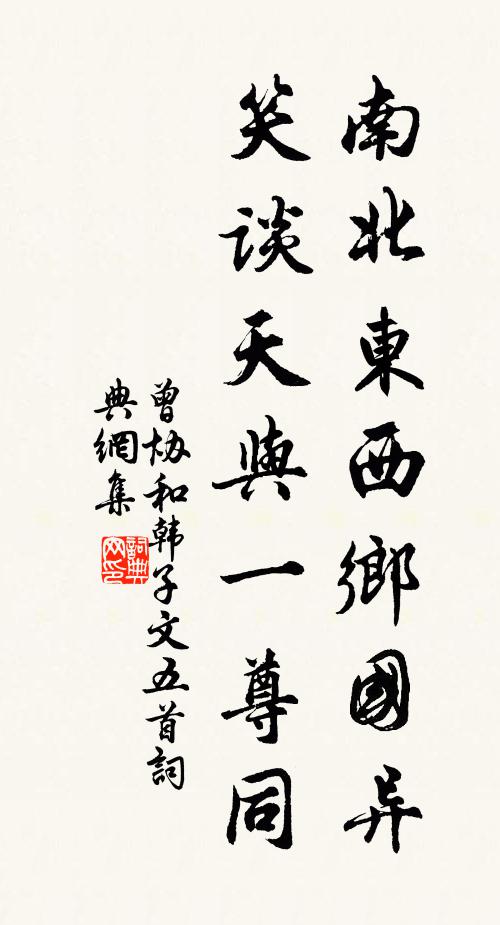 南北東西鄉國异
笑談天與一尊同
曾协和韩子文五首詞
典網集
詞典網印